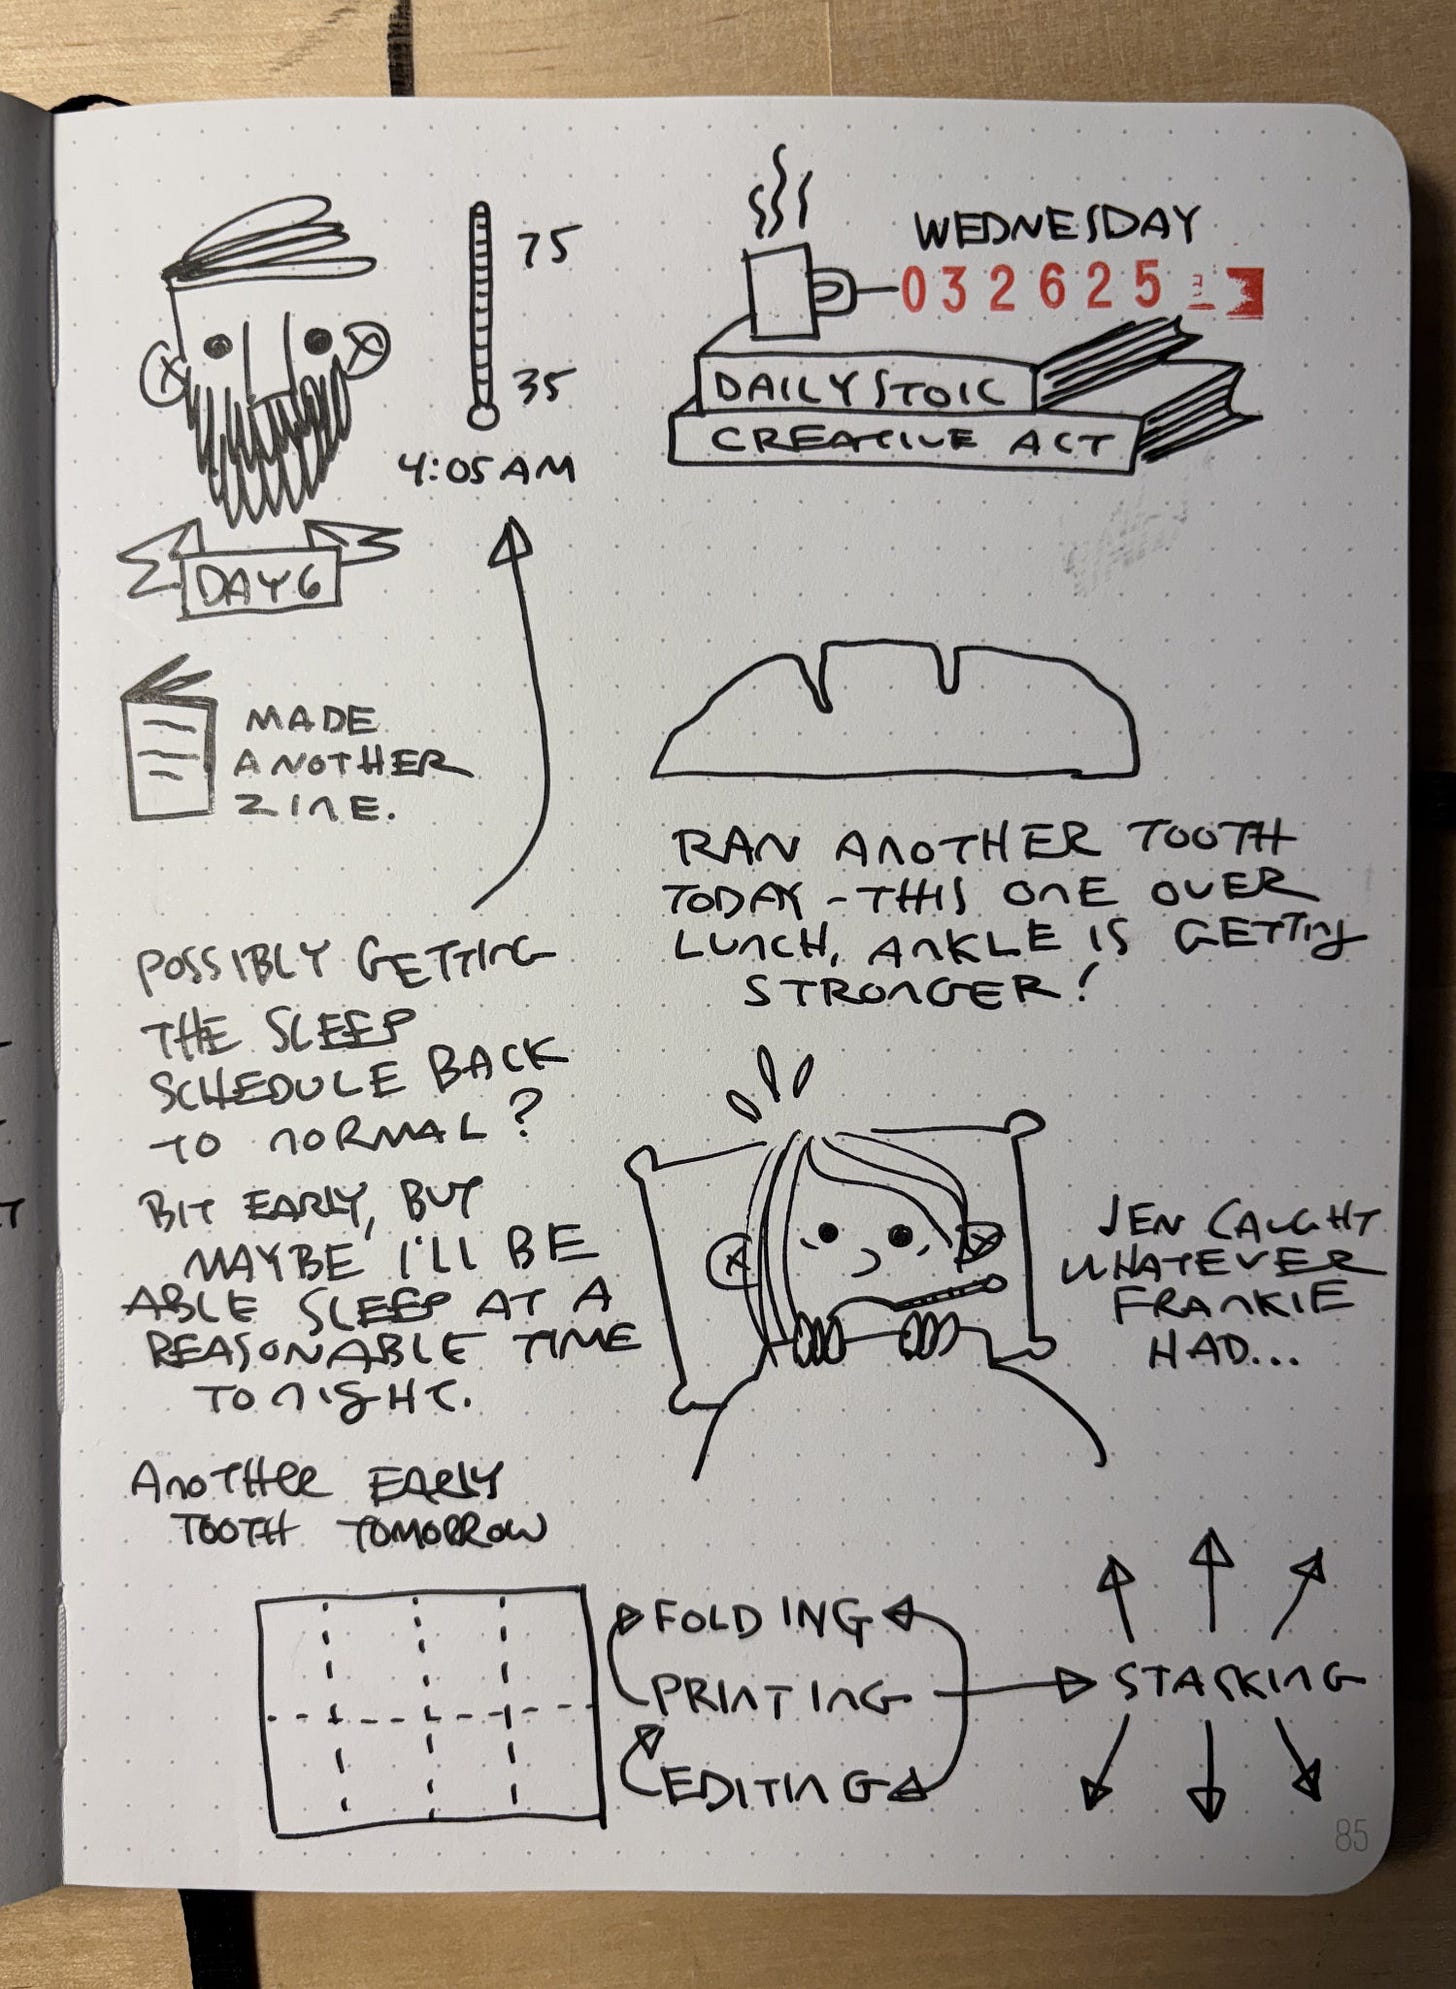 75
35
4:05 AM
DAY 6
WEDNESDAY
032625
DAILY STOIC
CREATIVE ACT
MADE
ANOTHER
ZINE.
RAN ANOTHER TOOTH
TODAY - THIS ONE OVER
LUNCH, ANKLE IS GETTING
STRONGER!
POSSIBLY GETTING
THE SLEEP
SCHEDULE BACK
TO NORMAL?
BIT EARLY, BUT
MAYBE I'LL BE
ABLE SLEEP AT A
REASONABLE TIME
TONIGHT.
JEN CAUGHT
WHATEVER
FRANKIE
HAD...
ANOTHER EARLY
TOOTH TOMORROW
FOLDING
PRINTING
EDITING
STASKING
85